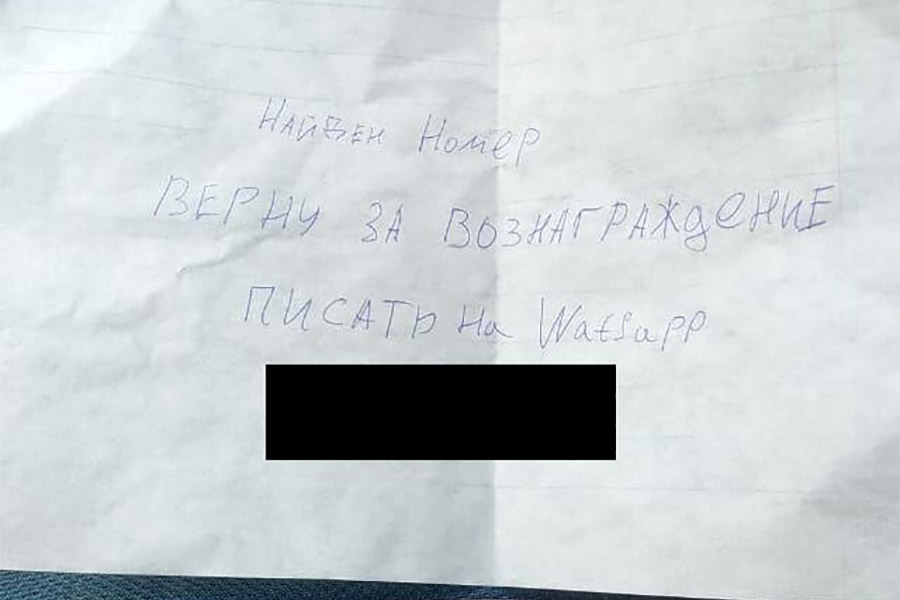 Найден Номер
ВЕРНУ ЗА ВОЗНАГРАЖДеНИЕ
ПИСАТЬ На Watsapp